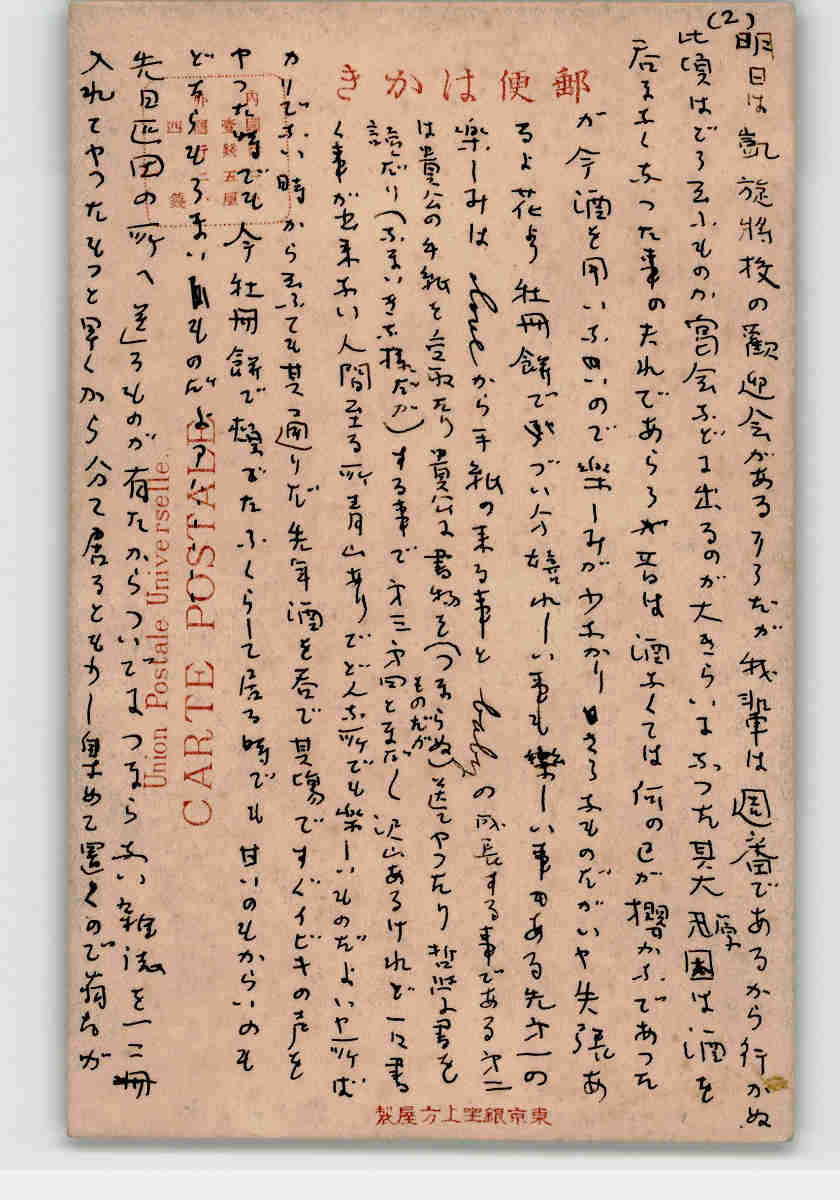 (2)
明日は凱旋将校の歓迎会があるサうだが我輩は週番であるから行かぬ
此頃はどう云ふものか宴会などに出るのが大きらいになつた其大原因は酒を
呑まなくなつた事の為れであらうが昔は酒なくては何の己が櫻かなであつた
が今酒を用いないので楽しみが少なかり日さうなものだがいや失張ある
るよ花より牡丹餅で此づい分嬉れしい事も楽しい事もある先第一の
楽しみは loveから手紙の来る事と babyの成長する事である第二
は貴公の手紙を受取たり貴公に書物を(つまらぬものだが)送てやつたり哲学書を
読だり(なまいきな様だが)する事で第三第四とまだ〱沢山あるけれど一々書
く事が出来ない人間至る所青山ありでどんな所でも楽しいものだよいや一所ば
かりでない時から云ふても其通りだ先年酒を呑で其場ですぐイビキの声を
やつた時でも今牡丹餅で頬でたふくらして居る時でも甘いのもからいのも
どちらもうまいものだよアハ……
先日匹田の所へ送るものが有たからついでにつまらない雑誌を一二冊
入れてやつたもつと早くから分て居るともう少し集めて置くので有たが
郵便はがき
Union Postale Universelle.
CARTE POSTALE
東京銀座上方屋製